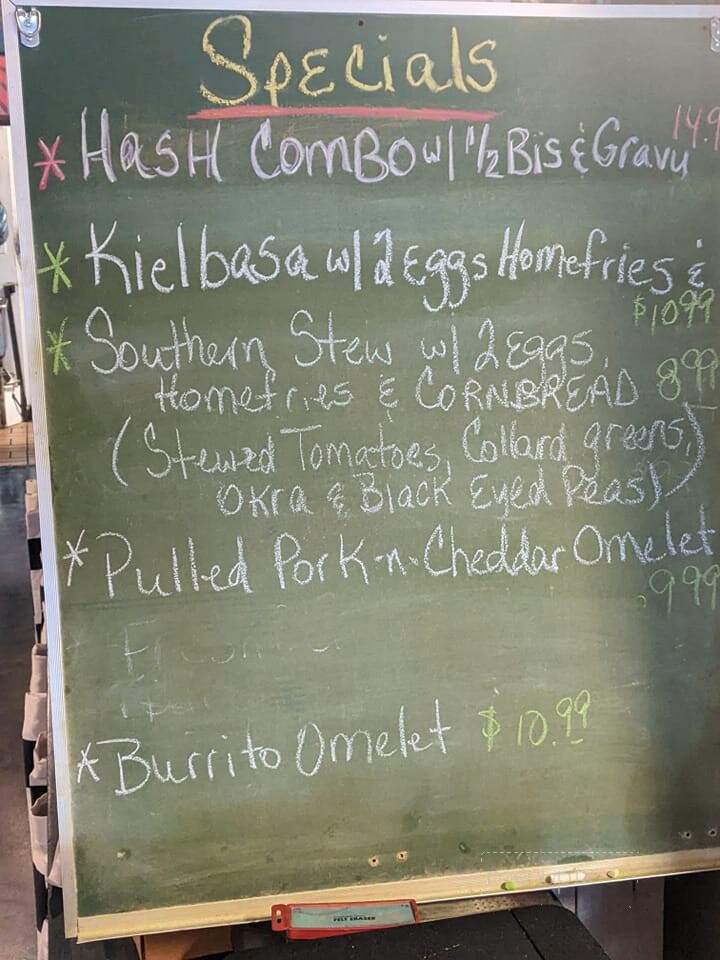 Specials
* HasH ComBO w/ 1/2 Bis & Gravy 14.9
* Kielbasa w/ 2 Eggs Homefries &
$10.99
* Southern Stew w/ 2 Eggs,
Homefries & CORNBREAD 8.99
(Stewed Tomatoes, Collard greens,
OKra & Black Eyed Peas)
* Pulled Pork-n-Cheddar Omelet
.999
* Burrito Omelet $10.99
FELT ERASER